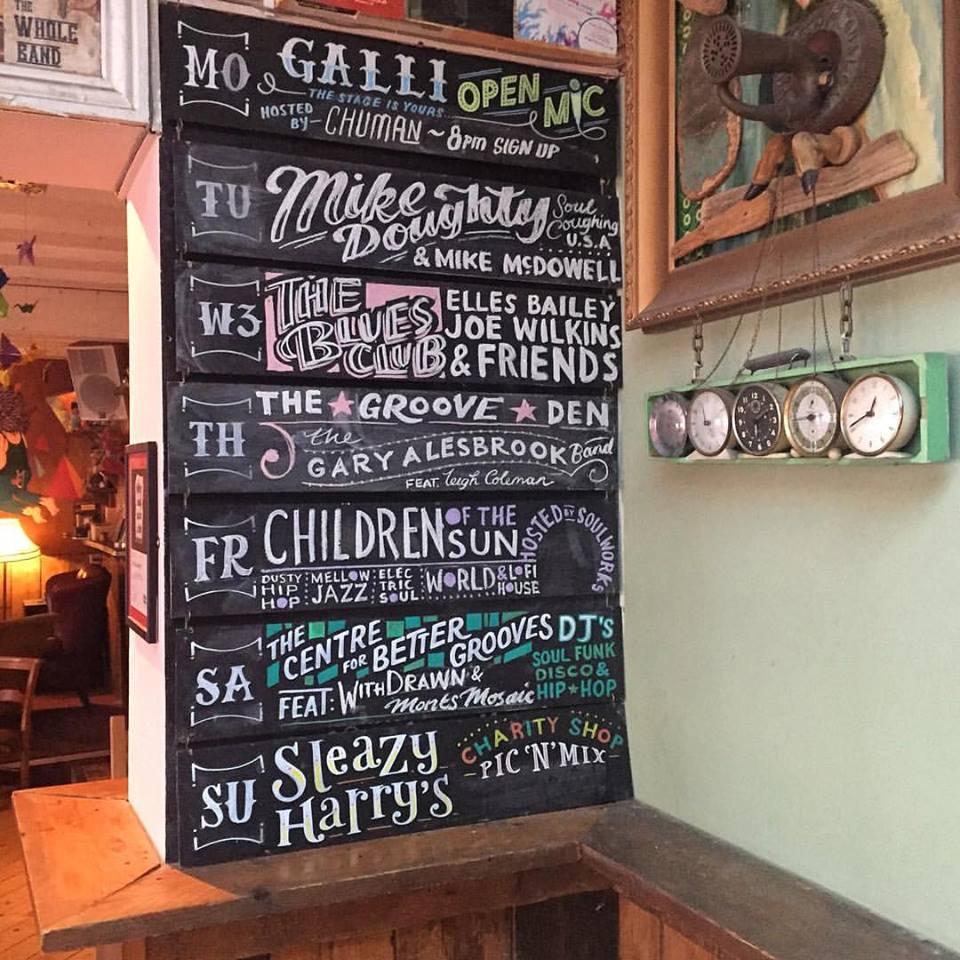 THE
WHOLE
BAND
MO GALLI OPEN MIC
THE STAGE IS YOURS
HOSTED BY- CHUMAN ~ 8pm SIGN UP
TU Mike Doughty Soul Coughing U.S.A
& MIKE McDOWELL
W3 THE BLUES CLUB
ELLES BAILEY
JOE WILKINS
& FRIENDS
TH THE ★ GROOVE ★ DEN
the
GARY ALESBROOK Band
FEAT. Leigh Coleman
FR CHILDREN OF THE SUN
HOSTED BY SOULWORKS
DUSTY HIP HOP : MELLOW JAZZ : ELECTRIC SOUL : WORLD & LOFI HOUSE
SA THE CENTRE FOR BETTER GROOVES DJ'S
FEAT: WITHDRAWN & Monts Mosaic
SOUL FUNK
DISCO &
HIP ★ HOP
SU Sleazy Harry's
CHARITY SHOP
-PIC 'N' MIX-